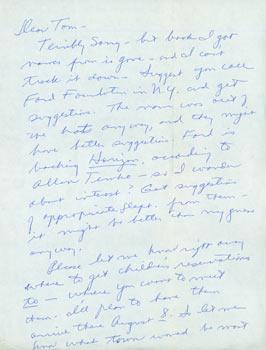 Dear Tom -
Terribly Sorry - but book I got
names from is gone - and I can't
track it down. Suggest you call
Ford Foundation in N.Y. and get
suggestion. The name was out of
anyway, and they might
have better suggestion. Ford is
backing Horizon, according to
Allan Temko - so I wonder
about interest? Get suggestion
of appropriate dept. from them -
it might be better than my guess
anyway.
Please let me know right away
where to get children's reservations
to - where you want to meet
them. all plan to have them
arrive there August 8. So let me
know what town would be most